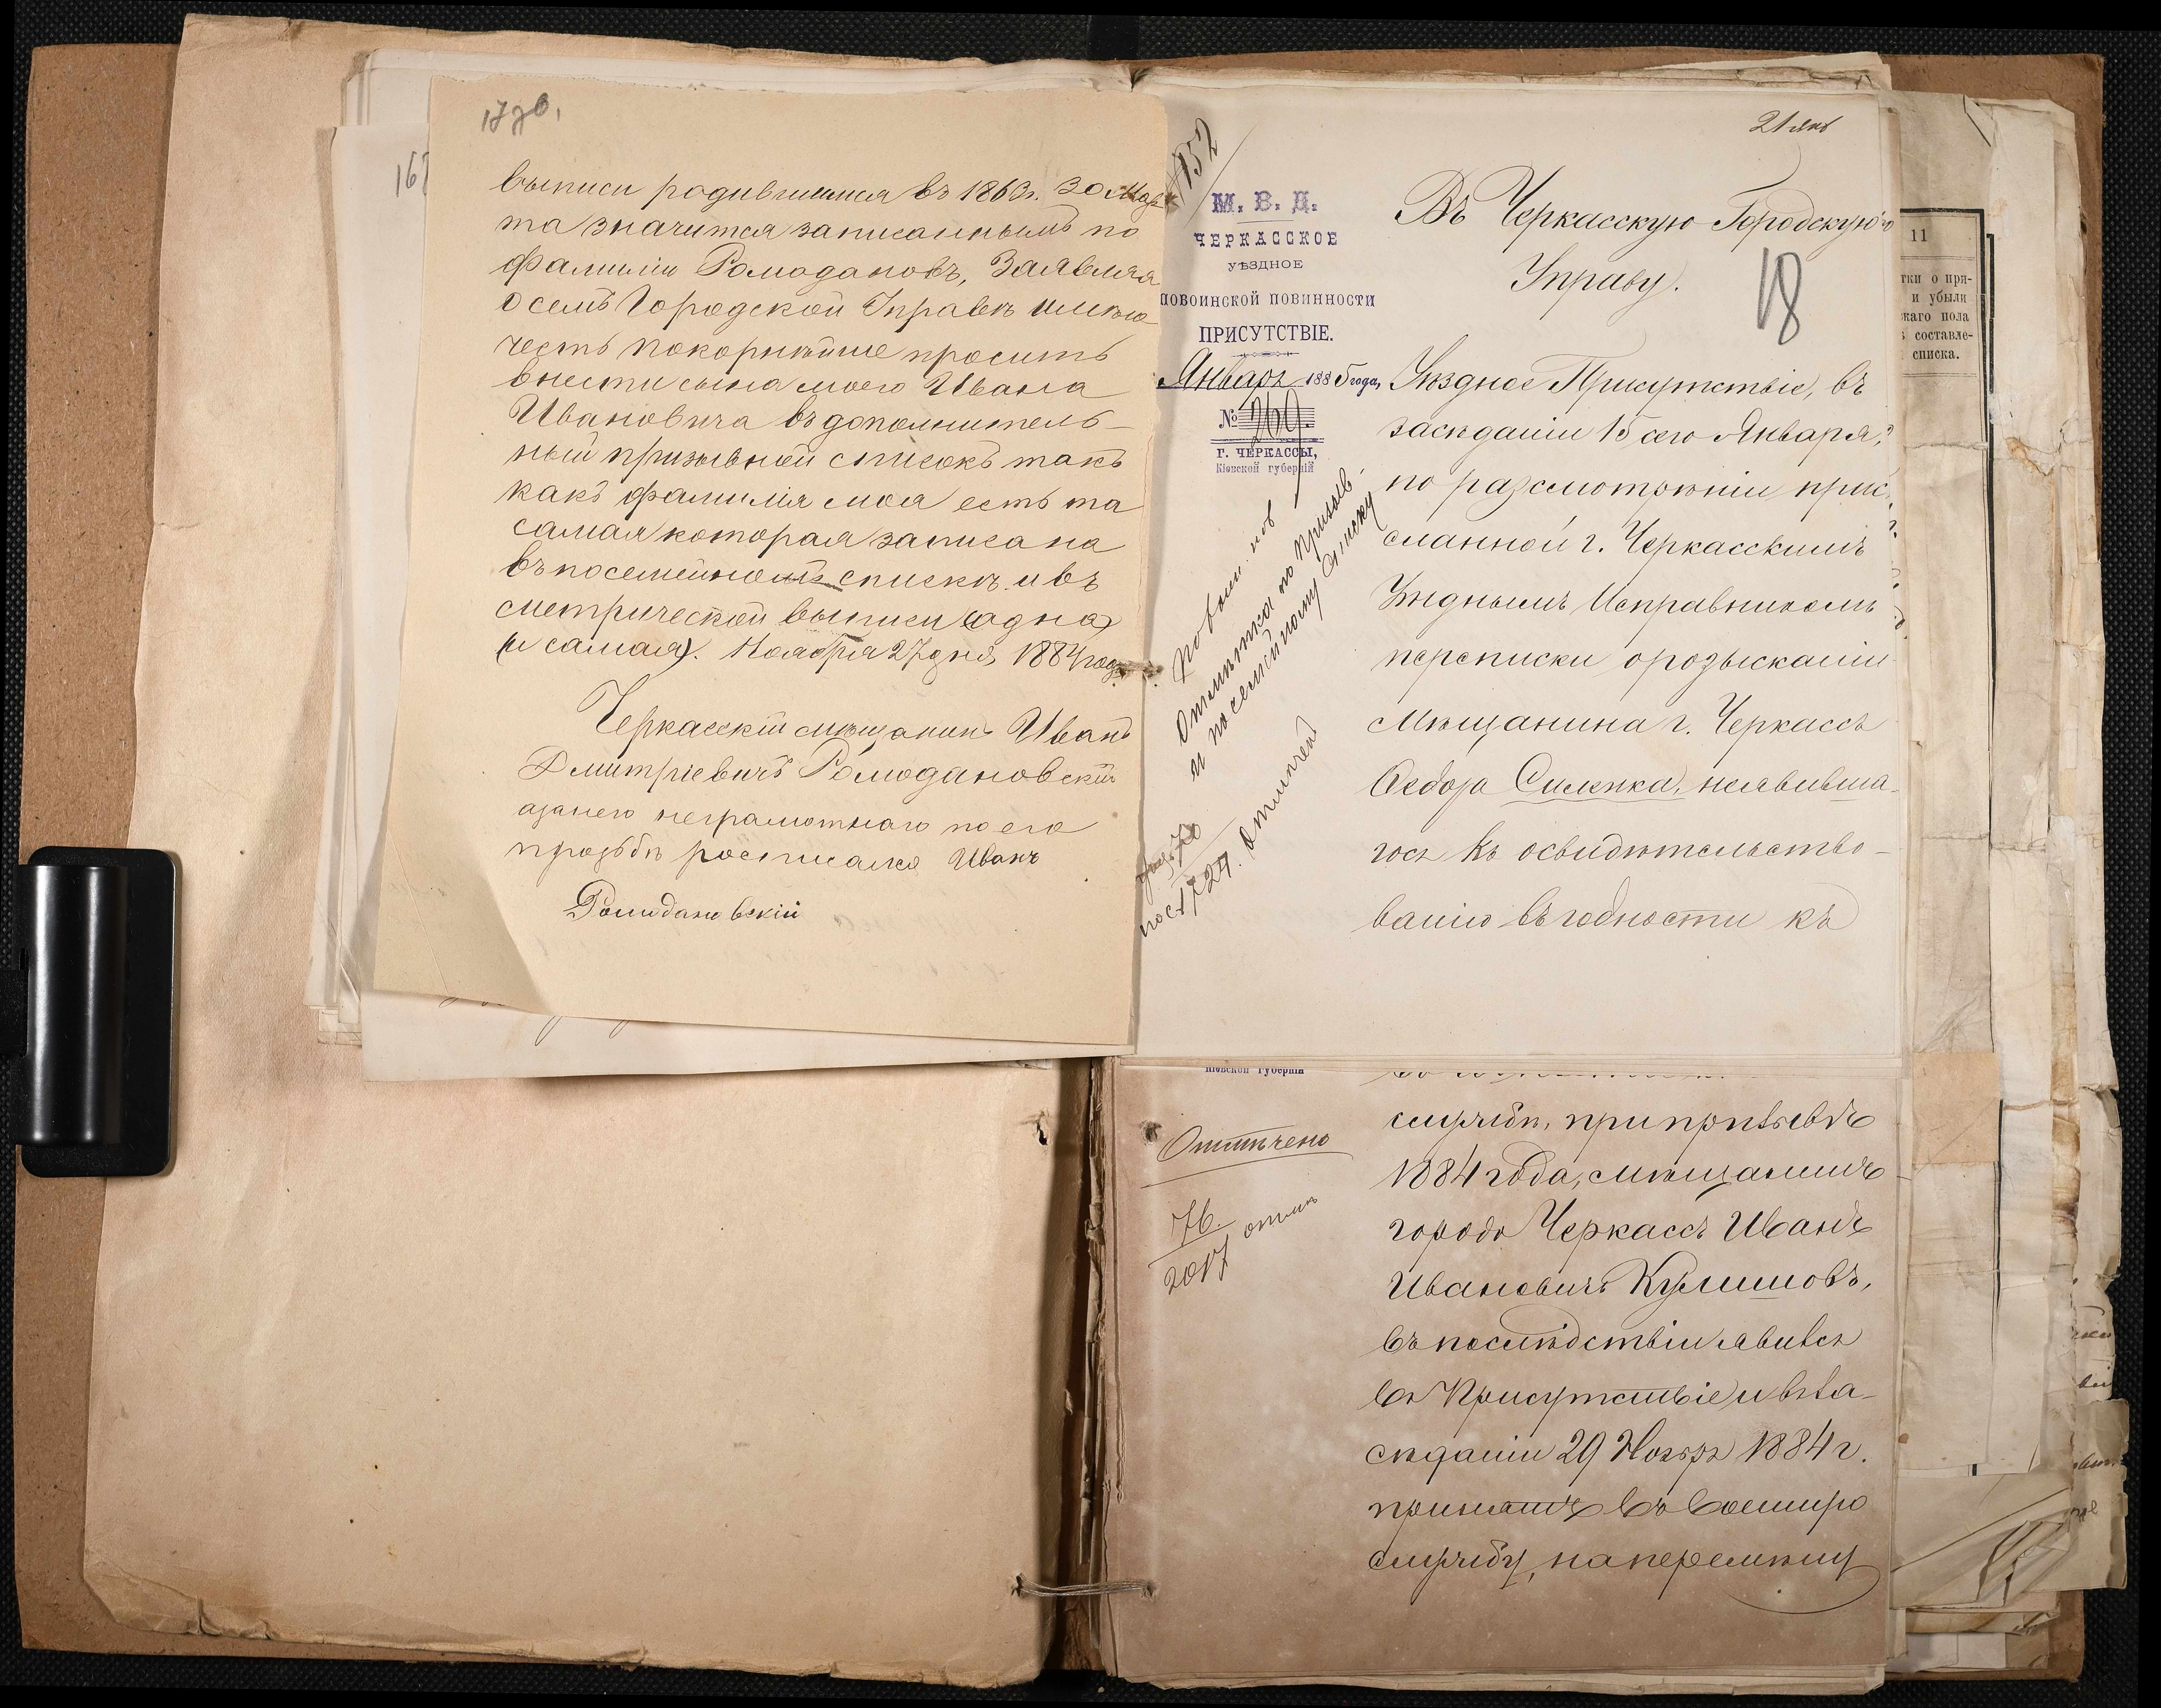 17 зв,
выписи родившимся въ 1863 г. 30 Мар-
та значится записаннымъ по
фамиліи Ромодановъ, Заявляя
о семъ Городской Управѣ имѣю
честь покорнѣйше просить
внести сына моего Ивана
Ивановича въ дополнитель-
ный призывной списокъ такъ
какъ фамилія моя есть та
самая которая записана
въ посемейномъ спискѣ и въ
метрической выписи (одна
и самая). Ноября 27 дня 1884 года
Черкасскій мѣщанинъ Иванъ
Дмитріевичъ Ромодановскій
а за него неграмотнаго по его
прозьбѣ росписался Иванъ
Ромодановскій
167
21 янв
152
М. В. Д.
ЧЕРКАССКОЕ
УѢЗДНОЕ
ПОВОИНСКОЙ ПОВИННОСТИ
ПРИСУТСТВІЕ.
Январь 1885 года,
№ 269.
Г. ЧЕРКАССЫ,
Кіевской губерніи
Въ Черкасскую Городскую
Управу.
18
Уѣздное Присутствіе, въ
засѣданіи 15 сего Января,
по разсмотрѣніи при-
сланной г. Черкасскимъ
Уѣзднымъ Исправникомъ
переписки о розысканіи
Мѣщанина г. Черкассъ
Федора Силенка, неявивша-
гося къ освидѣтельство-
ванію въ годности къ
отмѣтка по призыв.
и посемейному списку
1724. Отмѣчено
Кіевской губерніи
Отмѣчено
76.
2017 отмѣ
службѣ, при призывѣ
1884 года, мѣщанинъ
города Черкассъ Иванъ
Ивановичъ Кулишовъ,
въ послѣдствіи явился
въ Присутствіе и въ за-
сѣданіи 29 Ноября 1884 г.
принятъ въ военную
службу, на перемѣну
11
тки о при-
и убыли
жаго пола
составле-
списка.